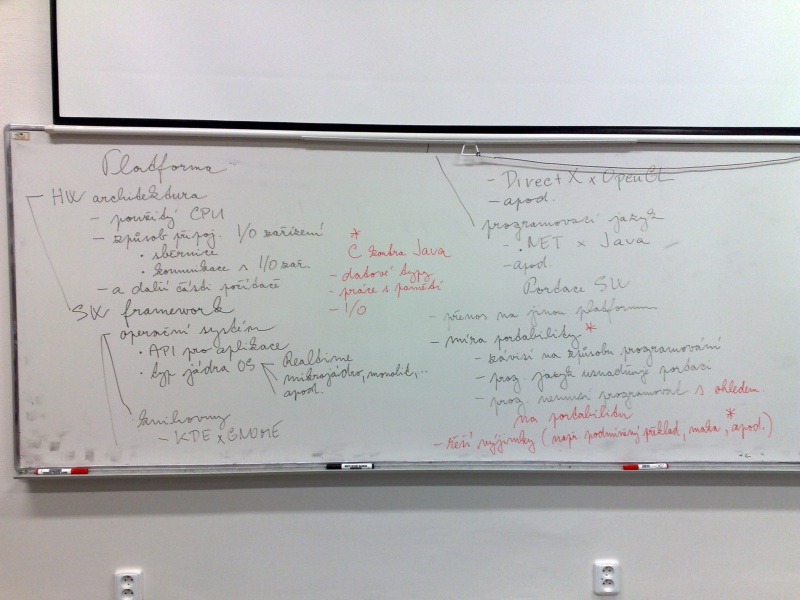 Platforma
HW architektura
- použitý CPU
- způsob připoj. I/O zařízení
• sběrnice
• komunikace s I/O zař.
- a další části počítače
SW framework
operační systém
• API pro aplikace
• typ jádra OS
Realtime
mikrojádro, monolit, ..
apod.
knihovny
- KDE x GNOME
*
C kontra Java
- datové typy
- práce s pamětí
- I/O
- DirectX x OpenGL
- apod.
programovací jazyk
- .NET x Java
- apod.
Portace SW
- přenos na jinou platformu
- míra portability *
- závisí na způsobu programování
- prog. jazyk usnadňuje portaci
- prog. nemusí programovat s ohledem
na portabilitu
- řeší výjimky (např. podmíněný překlad, makra, apod.) *